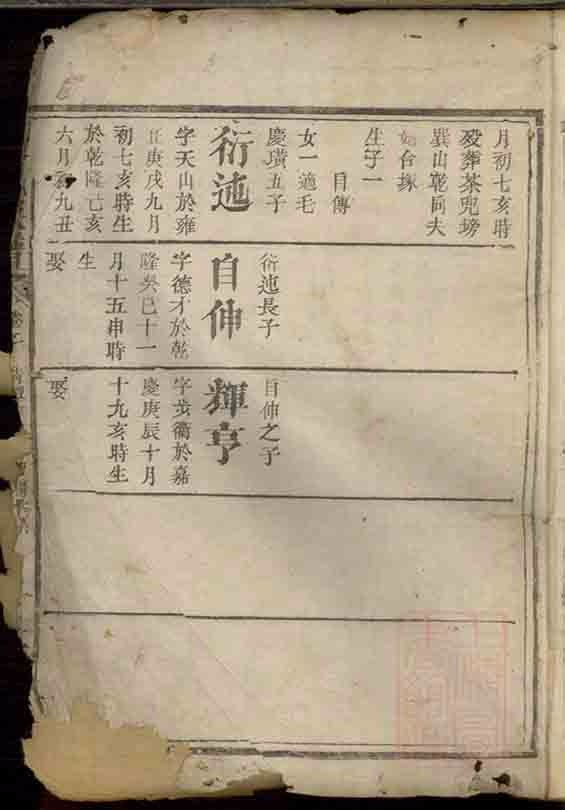 月初七亥時
歿葬茶兜塝
巽山乾向夫
合塚
生子一
目傳
女一適毛
慶璜五子
衍迆
字天山於雍
正庚戌九月
初七亥時生
於乾隆己亥
六月初九丑
衍迆長子
自伸
字德才於乾
隆癸巳十一
月十五申時
生
娶
自伸之子
輝亨
字步衢於嘉
慶庚辰十月
十九亥時生
娶